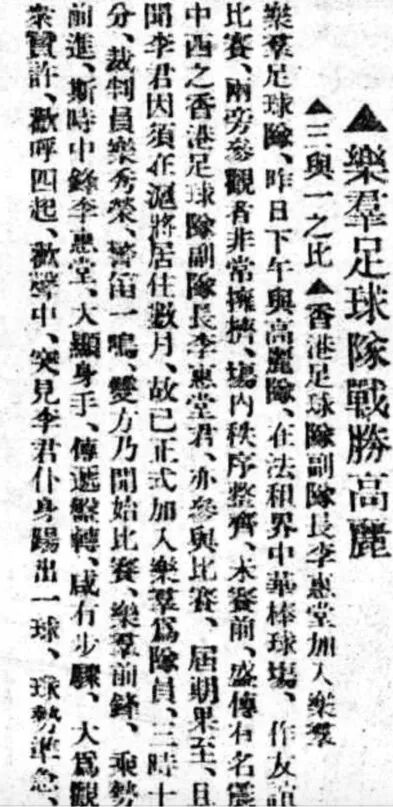 ▲樂羣足球隊戰勝高麗
▲三與一之比▲香港足球隊副隊長李惠堂加入樂羣
樂羣足球隊、昨日下午與高麗隊、在法租界中華棒球塲、作友誼
比賽、兩旁參觀者非常擁擠、塲內秩序整齊、未賽前、盛傳有名震
中西之香港足球隊副隊長李惠堂君、亦參與比賽、屆期果至、且
聞李君因須在滬將居住數月、故已正式加入樂羣爲隊員、三時十
分、裁判員樂秀榮、警笛一鳴、雙方乃開始比賽、樂羣前鋒、乘勢
前進、斯時中鋒李惠堂、大顯身手、傳遞盤轉、咸有步驟、大爲觀
衆贊許、歡呼四起、歡聲中、突見李君仆身踢出一球、球勢準急、